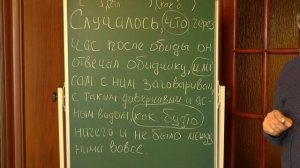 Случалось, что через
час после обиды он
отвечал обидчику, или
сам с ним заговаривал
с таким доверчивым и яс-
ным видом, как будто
ничего и не было между
ними вовсе.